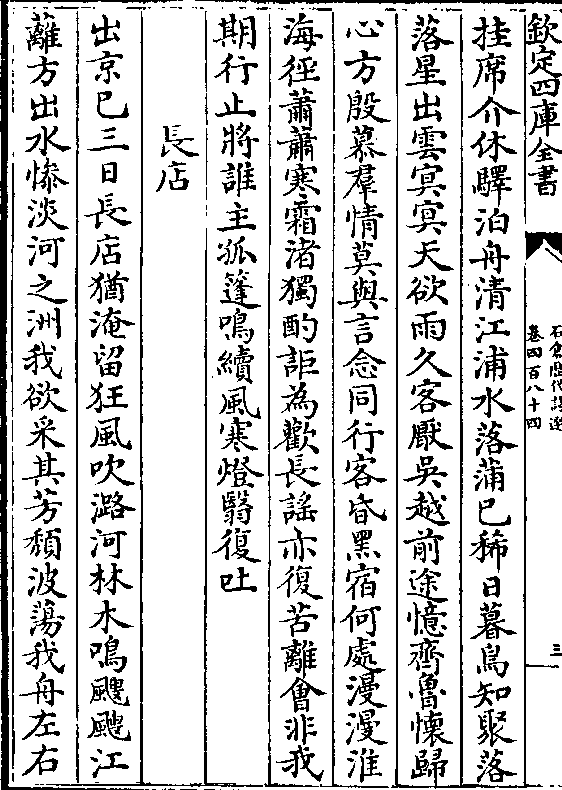 欽定四庫全書
石倉歷代詩選
卷四百八十四
三
挂席介休驛泊舟清江浦水落蒲已稀日暮鳥知聚落
落星出雲冥冥天欲雨久客厭吳越前途憶齊魯懷歸
心方殷慕羣情莫與言念同行客昏黑宿何處漫漫淮
海徑蕭蕭寒霜渚獨酌詎為歡長謡亦復苦離會非我
期行止將誰主狐篷鳴續風寒燈翳復吐
長店
出京已三日長店猶淹留狂風吹潞河林木鳴颼颼江
蘺方出水慘淡河之洲我欲采其芳頽波蕩我舟左右